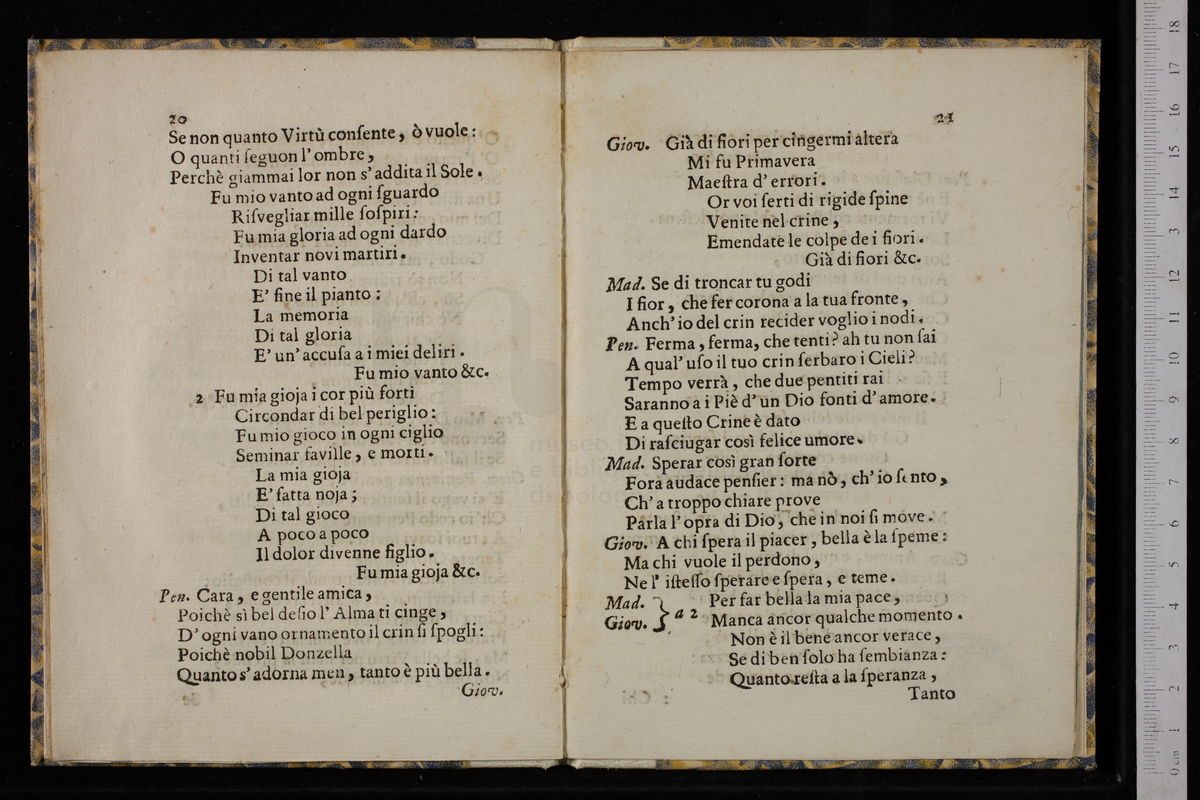 20
Se non quanto Virtù conſente, ò vuole:
O quanti ſeguon l' ombre,
Perchè giammai lor non s' addita il Sole.
Fu mio vanto ad ogni ſguardo
Riſvegliar mille ſoſpiri:
Fu mia gloria ad ogni dardo
Inventar novi martiri.
Di tal vanto
E' fine il pianto:
La memoria
Di tal gloria
E' un' accuſa a i miei deliri.
Fu mio vanto &c.
2 Fu mia gioja i cor più forti
Circondar di bel periglio:
Fu mio gioco in ogni ciglio
Seminar faville, e morti.
La mia gioja
E' fatta noja;
Di tal gioco
A poco a poco
Il dolor divenne figlio.
Fu mia gioja &c.
Pen. Cara, e gentile amica,
Poichè sì bel deſio l' Alma ti cinge,
D' ogni vano ornamento il crin ſi ſpogli:
Poichè nobil Donzella
Quanto s' adorna men, tanto è più bella.
Giov.
21
Giov. Già di fiori per cingermi altera
Mi fu Primavera
Maeſtra d' errori.
Or voi ſerti di rigide ſpine
Venite nel crine,
Emendate le colpe de i fiori.
Già di fiori &c.
Mad. Se di troncar tu godi
I fior, che fer corona a la tua fronte,
Anch' io del crin recider voglio i nodi.
Pen. Ferma, ferma, che tenti? ah tu non ſai
A qual' uſo il tuo crin ſerbaro i Cieli?
Tempo verrà, che due pentiti rai
Saranno a i Piè d' un Dio fonti d' amore.
E a queſto Crine è dato
Di raſciugar così felice umore.
Mad. Sperar così gran ſorte
Fora audace penſier: ma nò, ch' io ſento,
Ch' a troppo chiare prove
Parla l' opra di Dio, che in noi ſi move.
Giov. A chi ſpera il piacer, bella è la ſpeme:
Ma chi vuole il perdono,
Ne l' iſteſſo ſperare e ſpera, e teme.
Mad. } a 2 Per far bella la mia pace,
Giov. Manca ancor qualche momento.
Non è il bene ancor verace,
Se di ben ſolo ha ſembianza:
Quanto reſta a la ſperanza,
Tanto
0 cm 1 2 3 4 5 6 7 8 9 10 11 12 13 14 15 16 17 18